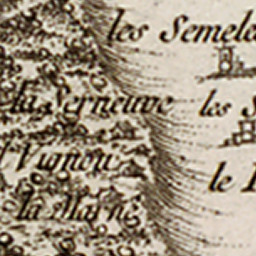 les Semele
la Serneuve les S
Vignou
le
la Marne